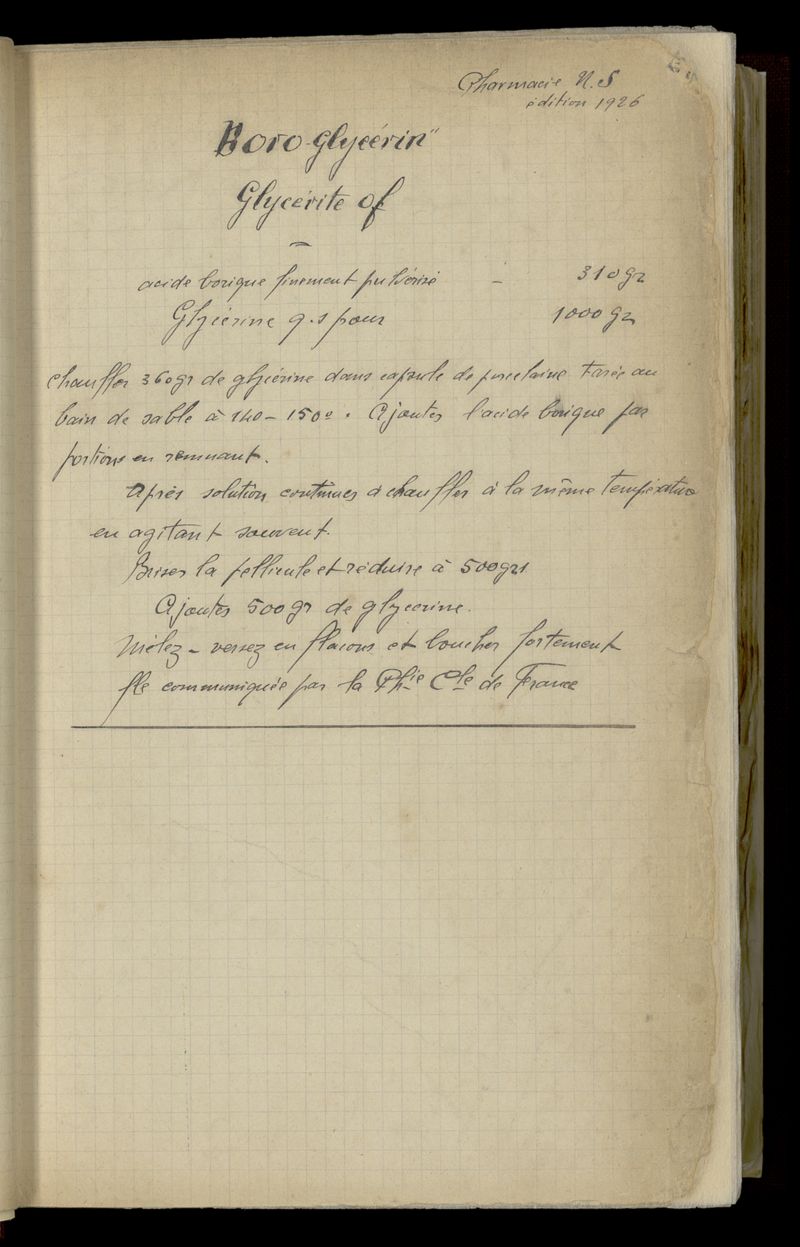 Pharmacie N.S
édition 1926
"Boro-Glycérin"
Glycérite of
acide borique finement pulvérisé - 310 gr
Glycérine q.s pour 1000 gr
chauffer 360 gr de glycérine dans capsule de porcelaine tarée au
bain de sable à 140 - 150°. Ajoutez l'acide borique par
portions en remuant.
Après solution continuez à chauffer à la même température
en agitant souvent.
Brisez la pellicule et réduire à 500 grs
Ajoutez 500 gr de glycerine.
Mêlez - versez en flacons et boucher fortement
fle communiquée par la Phie Cle de France